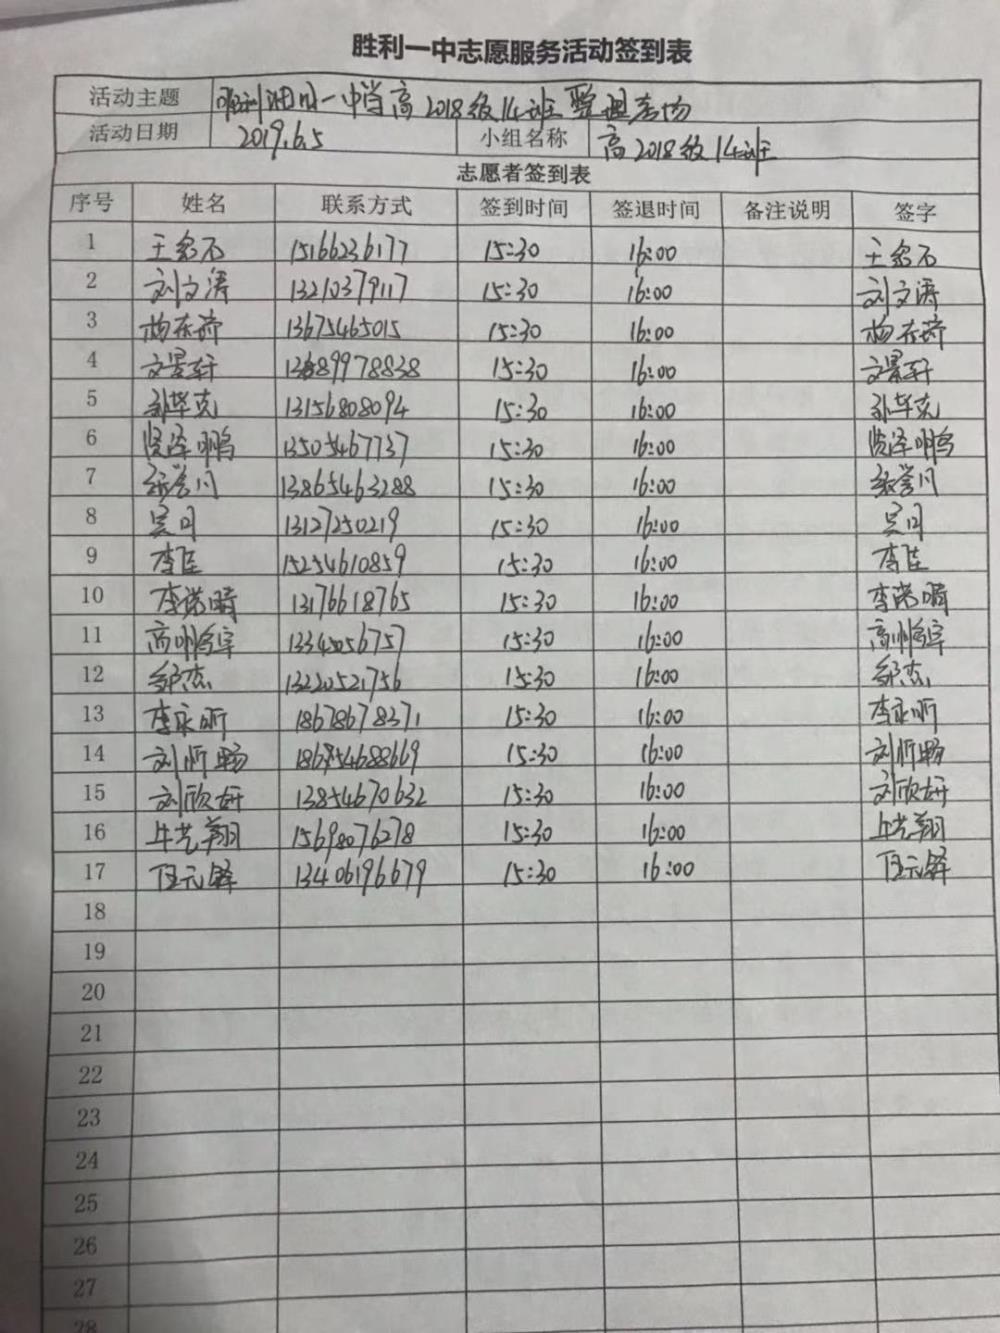 胜利一中志愿服务活动签到表
活动主题 胜利油田一中 高2018级14班 整理考场
活动日期 2019.6.5 小组名称 高2018级14班
志愿者签到表
序号 姓名 联系方式 签到时间 签退时间 备注说明 签字
1 王名石 15166236177 15:30 16:00 王名石
2 刘文涛 13210379117 15:30 16:00 刘文涛
3 杨在济 13675465015 15:30 16:00 杨在济
4 文景轩 13689978838 15:30 16:00 文景轩
5 孙华克 13156808094 15:30 16:00 孙华克
6 泽鹏 13505467737 15:30 16:00 泽鹏
7 张誉川 13865463288 15:30 16:00 张誉川
8 吴 13127250219 15:30 16:00 吴
9 李佳 15254610859 15:30 16:00 李佳
10 李诺晴 13176618765 15:30 16:00 李诺晴
11 高 宇 1334056757 15:30 16:00 高 宇
12 邹杰 13220521756 15:30 16:00 邹杰
13 李永昕 18678678371 15:30 16:00 李永昕
14 刘昕畅 15:30 16:00 刘昕畅
15 刘欣妍 13854670632 15:30 16:00 刘欣妍
16 牛艺翔 15698076278 15:30 16:00 牛艺翔
17 任元铎 13406196679 15:30 16:00 任元铎
18
19
20
21
22
23
24
25
26
27
28